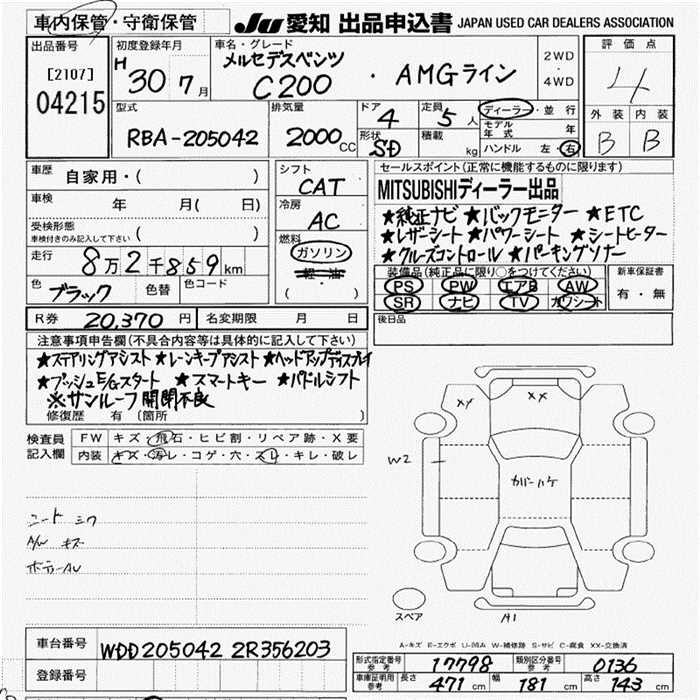 車内保管・守衛保管
JU 愛知 出品申込書 JAPAN USED CAR DEALERS ASSOCIATION
出品番号
[2107]
04215
初度登録年月
H 30 7月
車名・グレード
メルセデスベンツ
C200 ・ AMGライン
2WD
・
4WD
評価点
4
外装 内装
B B
型式
RBA-205042
排気量
2000cc
ドア
4
形状
SD
定員
5人
積載
kg
ディーラー・並行
モデル年式 年
ハンドル 左・右
車歴 自家用・( )
車検 年 月( 日)
受検形態
車検付きのみ記入して下さい ( )
走行 8万2千859km
色 ブラック 色替 色コード
R券 20,370円 名変期限 月 日
シフト
CAT
冷房
AC
燃料
ガソリン
軽油
( )
セールスポイント(正常に機能するものに限ります)
MITSUBISHIディーラー出品
★純正ナビ ★バックモニター ★ETC
★レザーシート ★パワーシート ★シートヒーター
★クルーズコントロール ★パーキングソナー
装備品(純正品に限り○をつけてください)
PS PW エアB AW
SR ナビ TV カワシート
新車保証書
有・無
後日品
注意事項申告欄(不具合内容等は具体的に記入して下さい)
★ステアリングアシスト ★レーンキープアシスト ★ヘッドアップディスプレイ
★プッシュE/Gスタート ★スマートキー ★パドルシフト
※サンルーフ開閉不良
修復歴 有 (箇所 )
検査員記入欄
FW キズ・飛石・ヒビ割・リペア跡・X要
内装 キズ・汚レ・コゲ・穴・スレ・キレ・破レ
A/W キズ
XX
XX
W2
カバーハゲ
A1
スペア
A-キズ E-エクボ U-凹み W-補修跡 S-サビ C-腐食 XX-交換済
車台番号 WDD205042 2R356203
登録番号
形式指定番号参考 17798 類別区分番号参考 0136
車庫証明用参考 長さ 471cm 幅 181cm 高さ 143cm